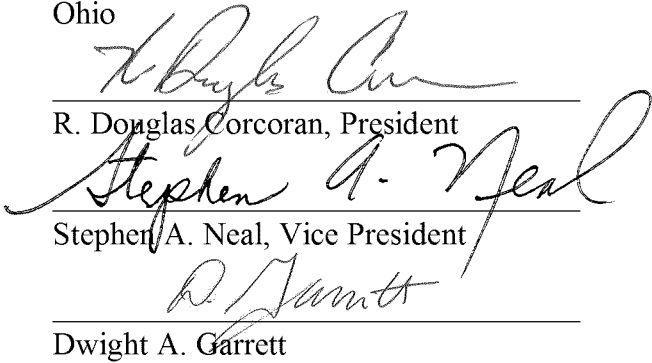 Ohio
R. Douglas Corcoran
R. Douglas Corcoran, President
Stephen A. Neal
Stephen A. Neal, Vice President
D. Garrett
Dwight A. Garrett